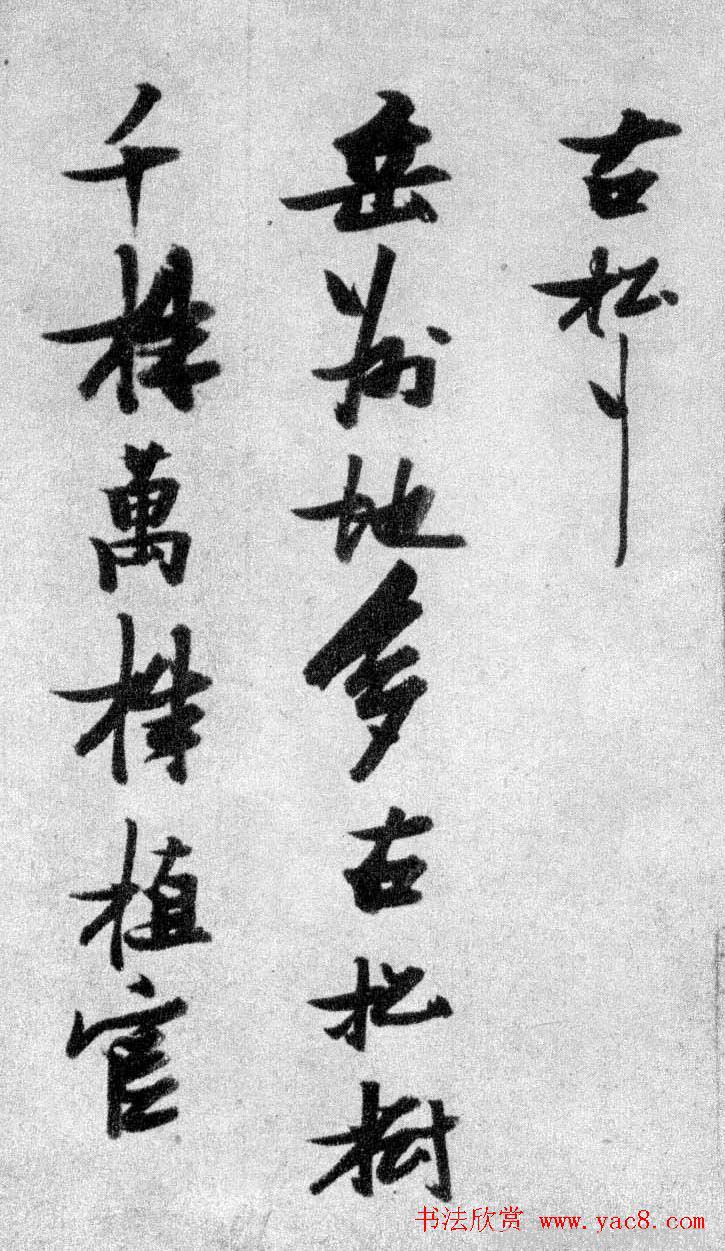 古松
岳 地多古松樹
千株萬株植官
书法欣赏 www.yac8.com